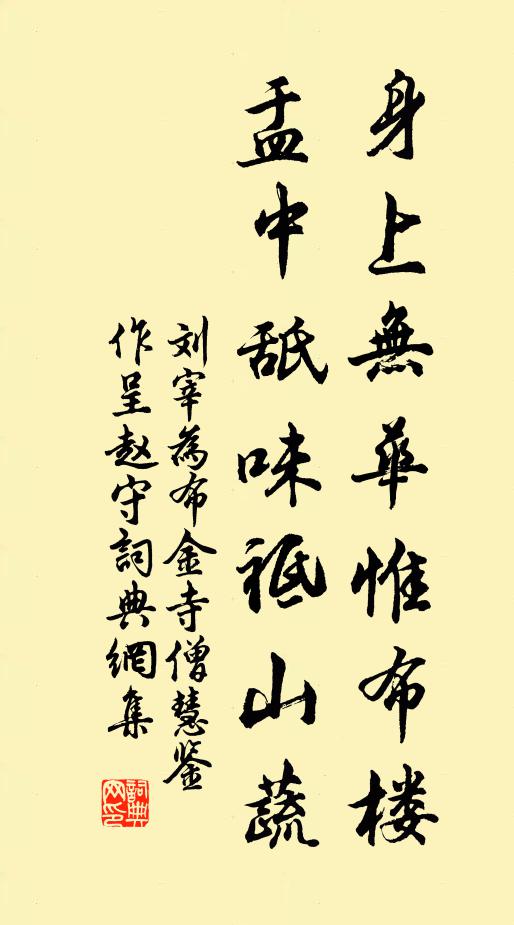 身上無華惟布楼
盂中舐味祗山蔬
刘宰為布金寺僧慧鉴
作呈赵守詞典網集
詞典